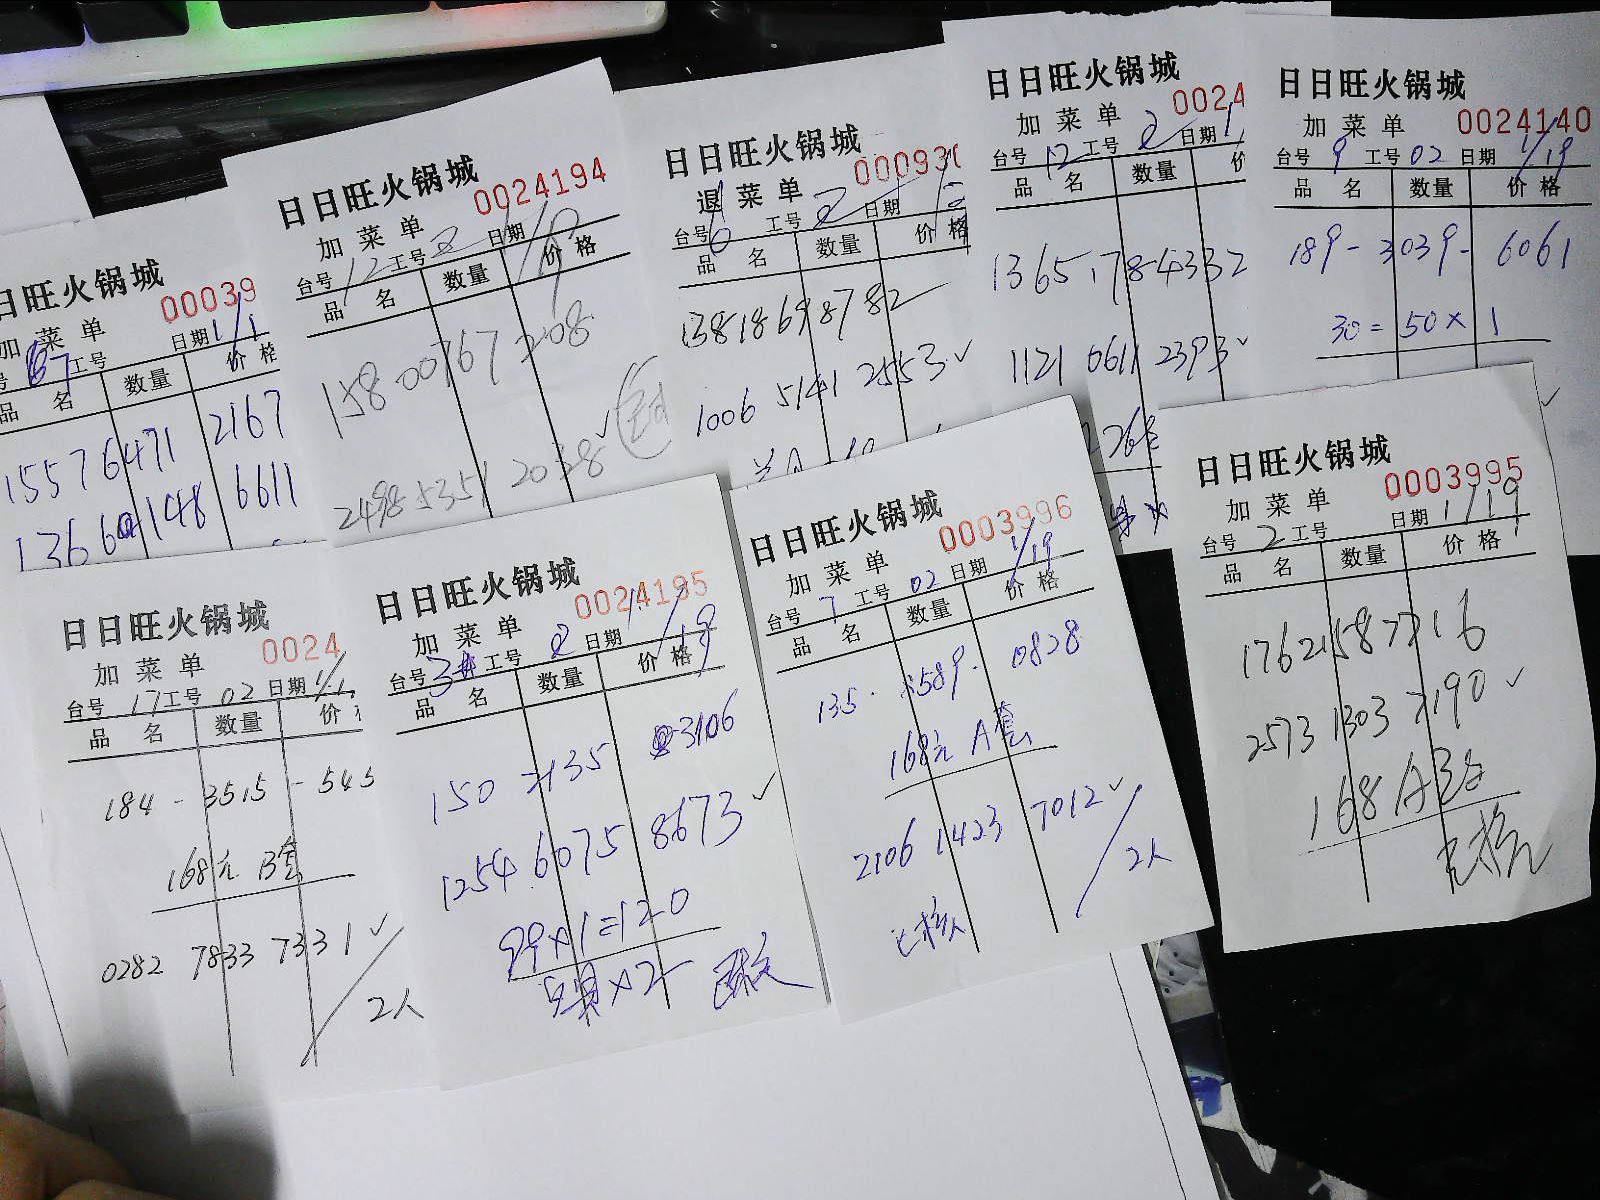 日日旺火锅城
00039
加菜单
工号 日期 1/1
品名 数量 价格
155 76471 2167
1366 148 6611
日日旺火锅城
0024194
加菜单
台号 12 工号 2 日期 1/19
品名 数量 价格
158 00767 208
2498 5351 2038 ✓
日日旺火锅城
000930
退菜单
台号 工号 2 日期
品名 数量 价格
138 1869 8782
1006 5141 2553 ✓
日日旺火锅城
0024
加菜单
台号 12 工号 2 日期 1
品名 数量 价
1365 178 4332
1121 0611 2393 ✓
日日旺火锅城
0024140
加菜单
台号 9 工号 02 日期 1/19
品名 数量 价格
189 - 3039 - 6061
30 = 50 × 1
日日旺火锅城
0024
加菜单
台号 17 工号 02 日期 1/1
品名 数量 价
184 - 3515 - 545
168元 B套
0282 7833 7331 ✓
2人
日日旺火锅城
0024195
加菜单
台号 3# 工号 2 日期 1/19
品名 数量 价格
150 2135 3106
1254 6075 8673 ✓
99×1=120
×2
日日旺火锅城
0003996
加菜单
台号 7 工号 02 日期 1/19
品名 数量 价格
135 · 1589 · 0828
168元 A套
2106 1423 7012 ✓
2人
已核
日日旺火锅城
0003995
加菜单
台号 2 工号 日期 1/19
品名 数量 价格
176 2158 7716
2573 1303 7190 ✓
168 A套
已核